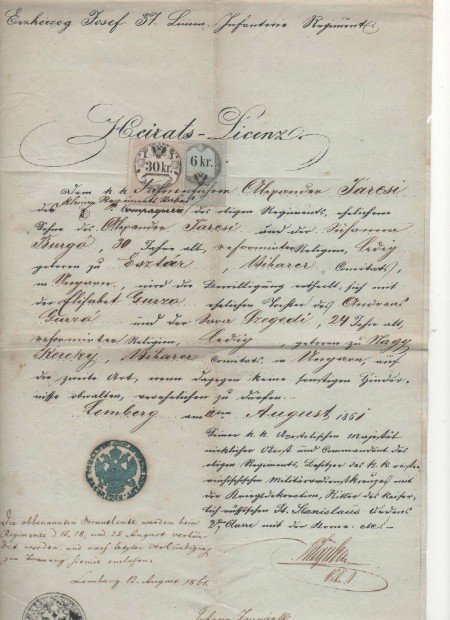 Erzherzog Josef 37. Linien Infanterie Regiment
Heirats-Licenz
30 kr. 6 kr.
Dem k. k. Alexander Taresi
des Compagnie des obigen Regiments, ehelichen
Sohne des Alexander Taresi und der Susanna
Burgó, 30 Jahre alt, reformirter Religion, ledig
geboren zu Esztár, Biharer Comitats,
in Ungarn, wird die Bewilligung ertheilt, sich mit
der Elisabet Gurzó ehelichen Tochter des Andreas
Gurzó und der Sara Szegedi, 24 Jahre alt,
reformirter Religion, ledig, geboren zu Nagy
Kereky, Biharer Comitats, in Ungarn, auf
die zweite Art, wenn dagegen keine sonstigen Hinder-
nisse obwalten, verehelichen zu dürfen.
Lemberg am August 1861
Seiner k. k. Apostolischen Majestät
wirklicher Oberst und Commandant des
obigen Regiments, Besitzer des k. k. oester-
reichischen Militärverdienstkreuzes mit
der Kriegsdekoration, Ritter des kaiser-
lich russischen St. Stanislaus Ordens
Classe mit der Krone etc.
Die obbenannten Brautleute werden beim
Regimente d 15, 18, und 25 August verkün-
det werden und nach letzter Verkündigung
zur Trauung hiemit entlassen.
Lemberg 12. August 1861.